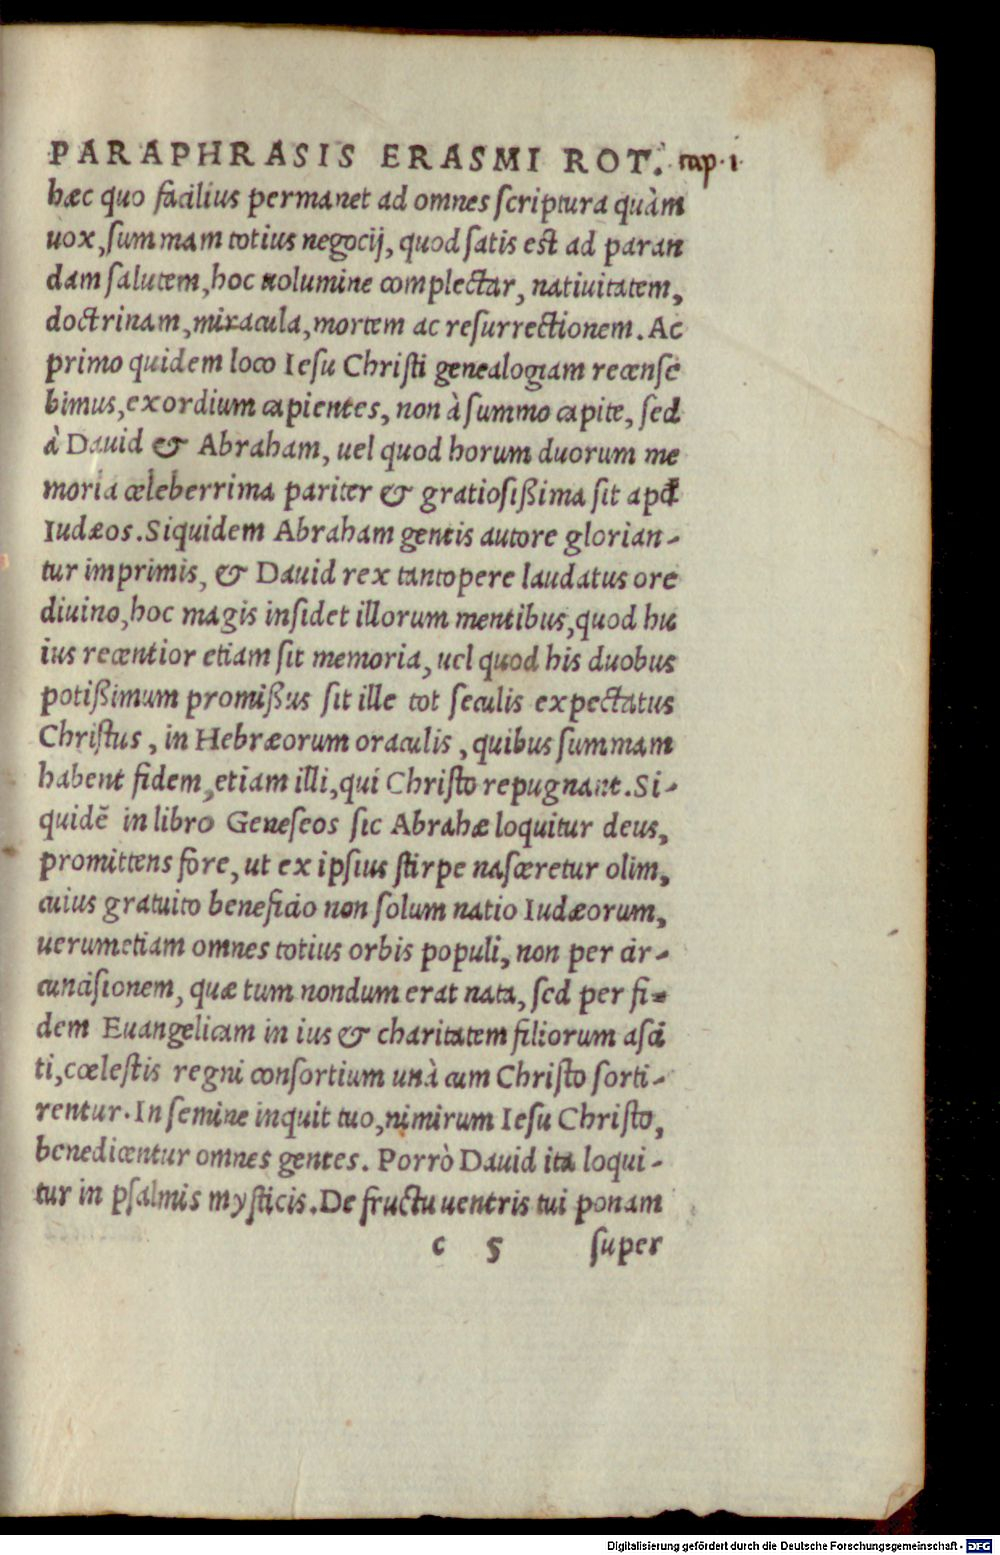 PARAPHRASIS ERASMI ROT. cap. 1
hæc quo facilius permanet ad omnes scriptura quàm
uox, summam totius negocij, quod satis est ad paran
dam salutem, hoc uolumine complectar, natiuitatem,
doctrinam, miracula, mortem ac resurrectionem. Ac
primo quidem loco Iesu Christi genealogiam recense
bimus, exordium capientes, non à summo capite, sed
à Dauid & Abraham, uel quod horum duorum me
moria celeberrima pariter & gratiosißima sit apđ
Iudæos. Siquidem Abraham gentis autore glorian-
tur imprimis, & Dauid rex tantopere laudatus ore
diuino, hoc magis insidet illorum mentibus, quod hu
ius recentior etiam sit memoria, uel quod his duobus
potißimum promißus sit ille tot seculis expectatus
Christus, in Hebræorum oraculis, quibus summam
habent fidem, etiam illi, qui Christo repugnant. Si-
quidē in libro Geneseos sic Abrahæ loquitur deus,
promittens fore, ut ex ipsius stirpe nasceretur olim,
cuius gratuito beneficio non solum natio Iudæorum,
uerumetiam omnes totius orbis populi, non per cir-
cuncisionem, quæ tum nondum erat nata, sed per fi-
dem Euangelicam in ius & charitatem filiorum asci
ti, cœlestis regni consortium unà cum Christo sorti-
rentur. In semine inquit tuo, nimirum Iesu Christo,
benedicentur omnes gentes. Porrò Dauid ita loqui-
tur in psalmis mysticis. De fructu uentris tui ponam
c 5 super
Digitalisierung gefördert durch die Deutsche Forschungsgemeinschaft - DFG